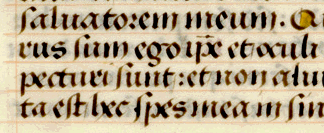 saluatorem meum: Q
rus sum ego ip̄e et oculi
pecturi sunt: et non aliu
ta est hec spes mea in sin